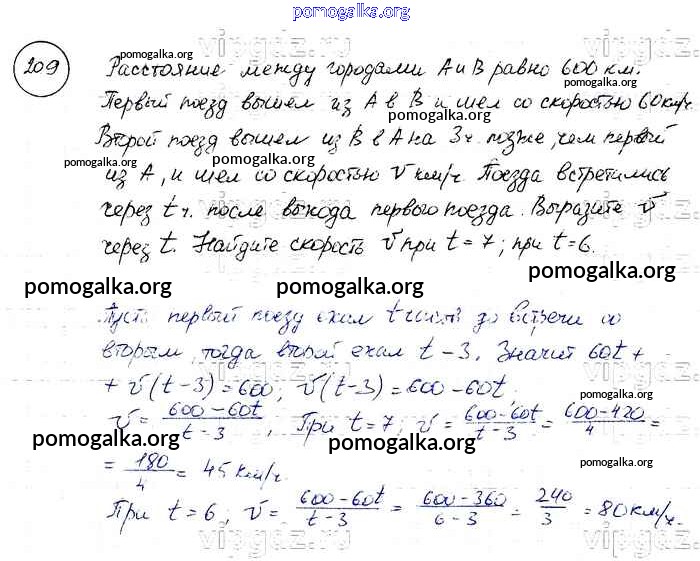 pomogalka.org
209
Расстояние между городами А и В равно 600 км.
Первый поезд вышел из А в В и шел со скоростью 60 км/ч.
Второй поезд вышел из В в А на 3 ч. позже, чем первый
из А, и шел со скоростью v км/ч. Поезда встретились
через t ч. после выхода первого поезда. Выразите v
через t. Найдите скорость v при t = 7; при t = 6.
pomogalka.org pomogalka.org pomogalka.org
Пусть первый поезд ехал t часов до встречи со
вторым, тогда второй ехал t - 3. Значит 60t +
+ v(t-3) = 600; v(t-3) = 600 - 60t
v = (600-60t)/(t-3), При t = 7; v = (600-60t)/(t-3) = (600-420)/4 =
= 180/4 = 45 км/ч.
При t = 6; v = (600-60t)/(t-3) = (600-360)/(6-3) = 240/3 = 80 км/ч.